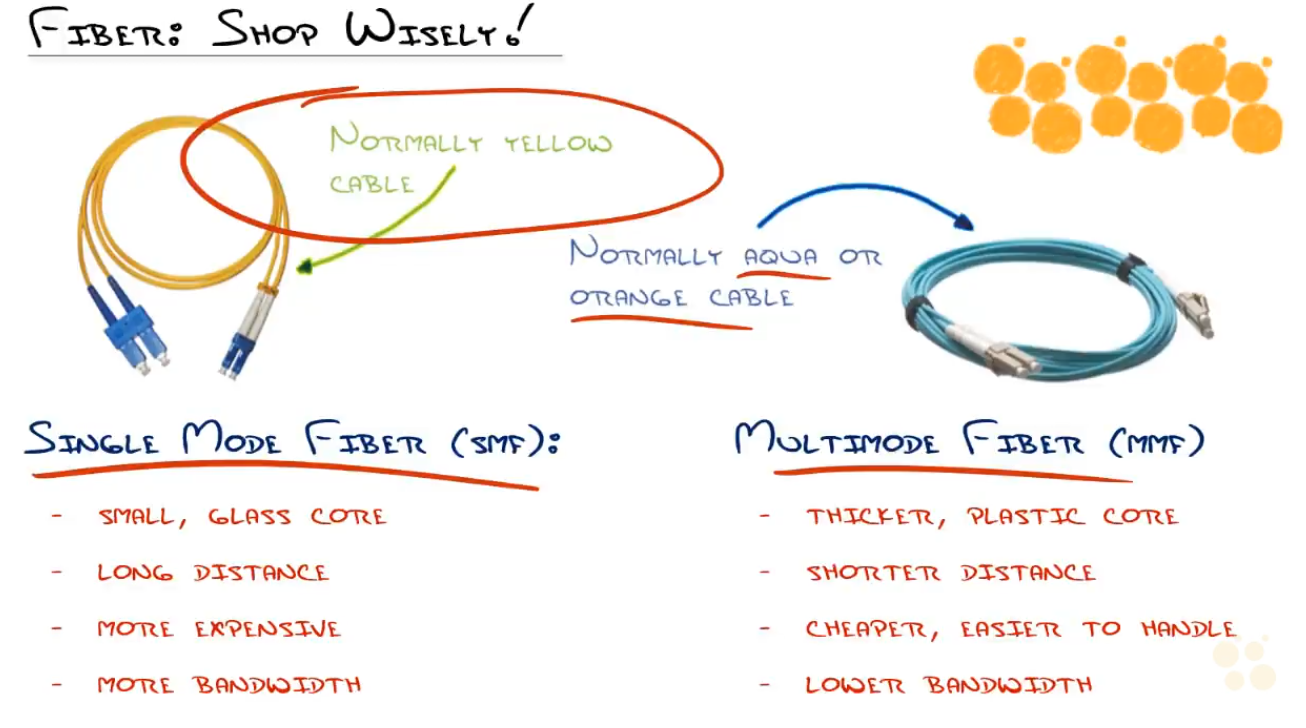 FIBER: SHOP WISELY!
NORMALLY YELLOW
CABLE
NORMALLY AQUA OR
ORANGE CABLE
SINGLE MODE FIBER (SMF):
- SMALL, GLASS CORE
- LONG DISTANCE
- MORE EXPENSIVE
- MORE BANDWIDTH
MULTIMODE FIBER (MMF)
- THICKER, PLASTIC CORE
- SHORTER DISTANCE
- CHEAPER, EASIER TO HANDLE
- LOWER BANDWIDTH